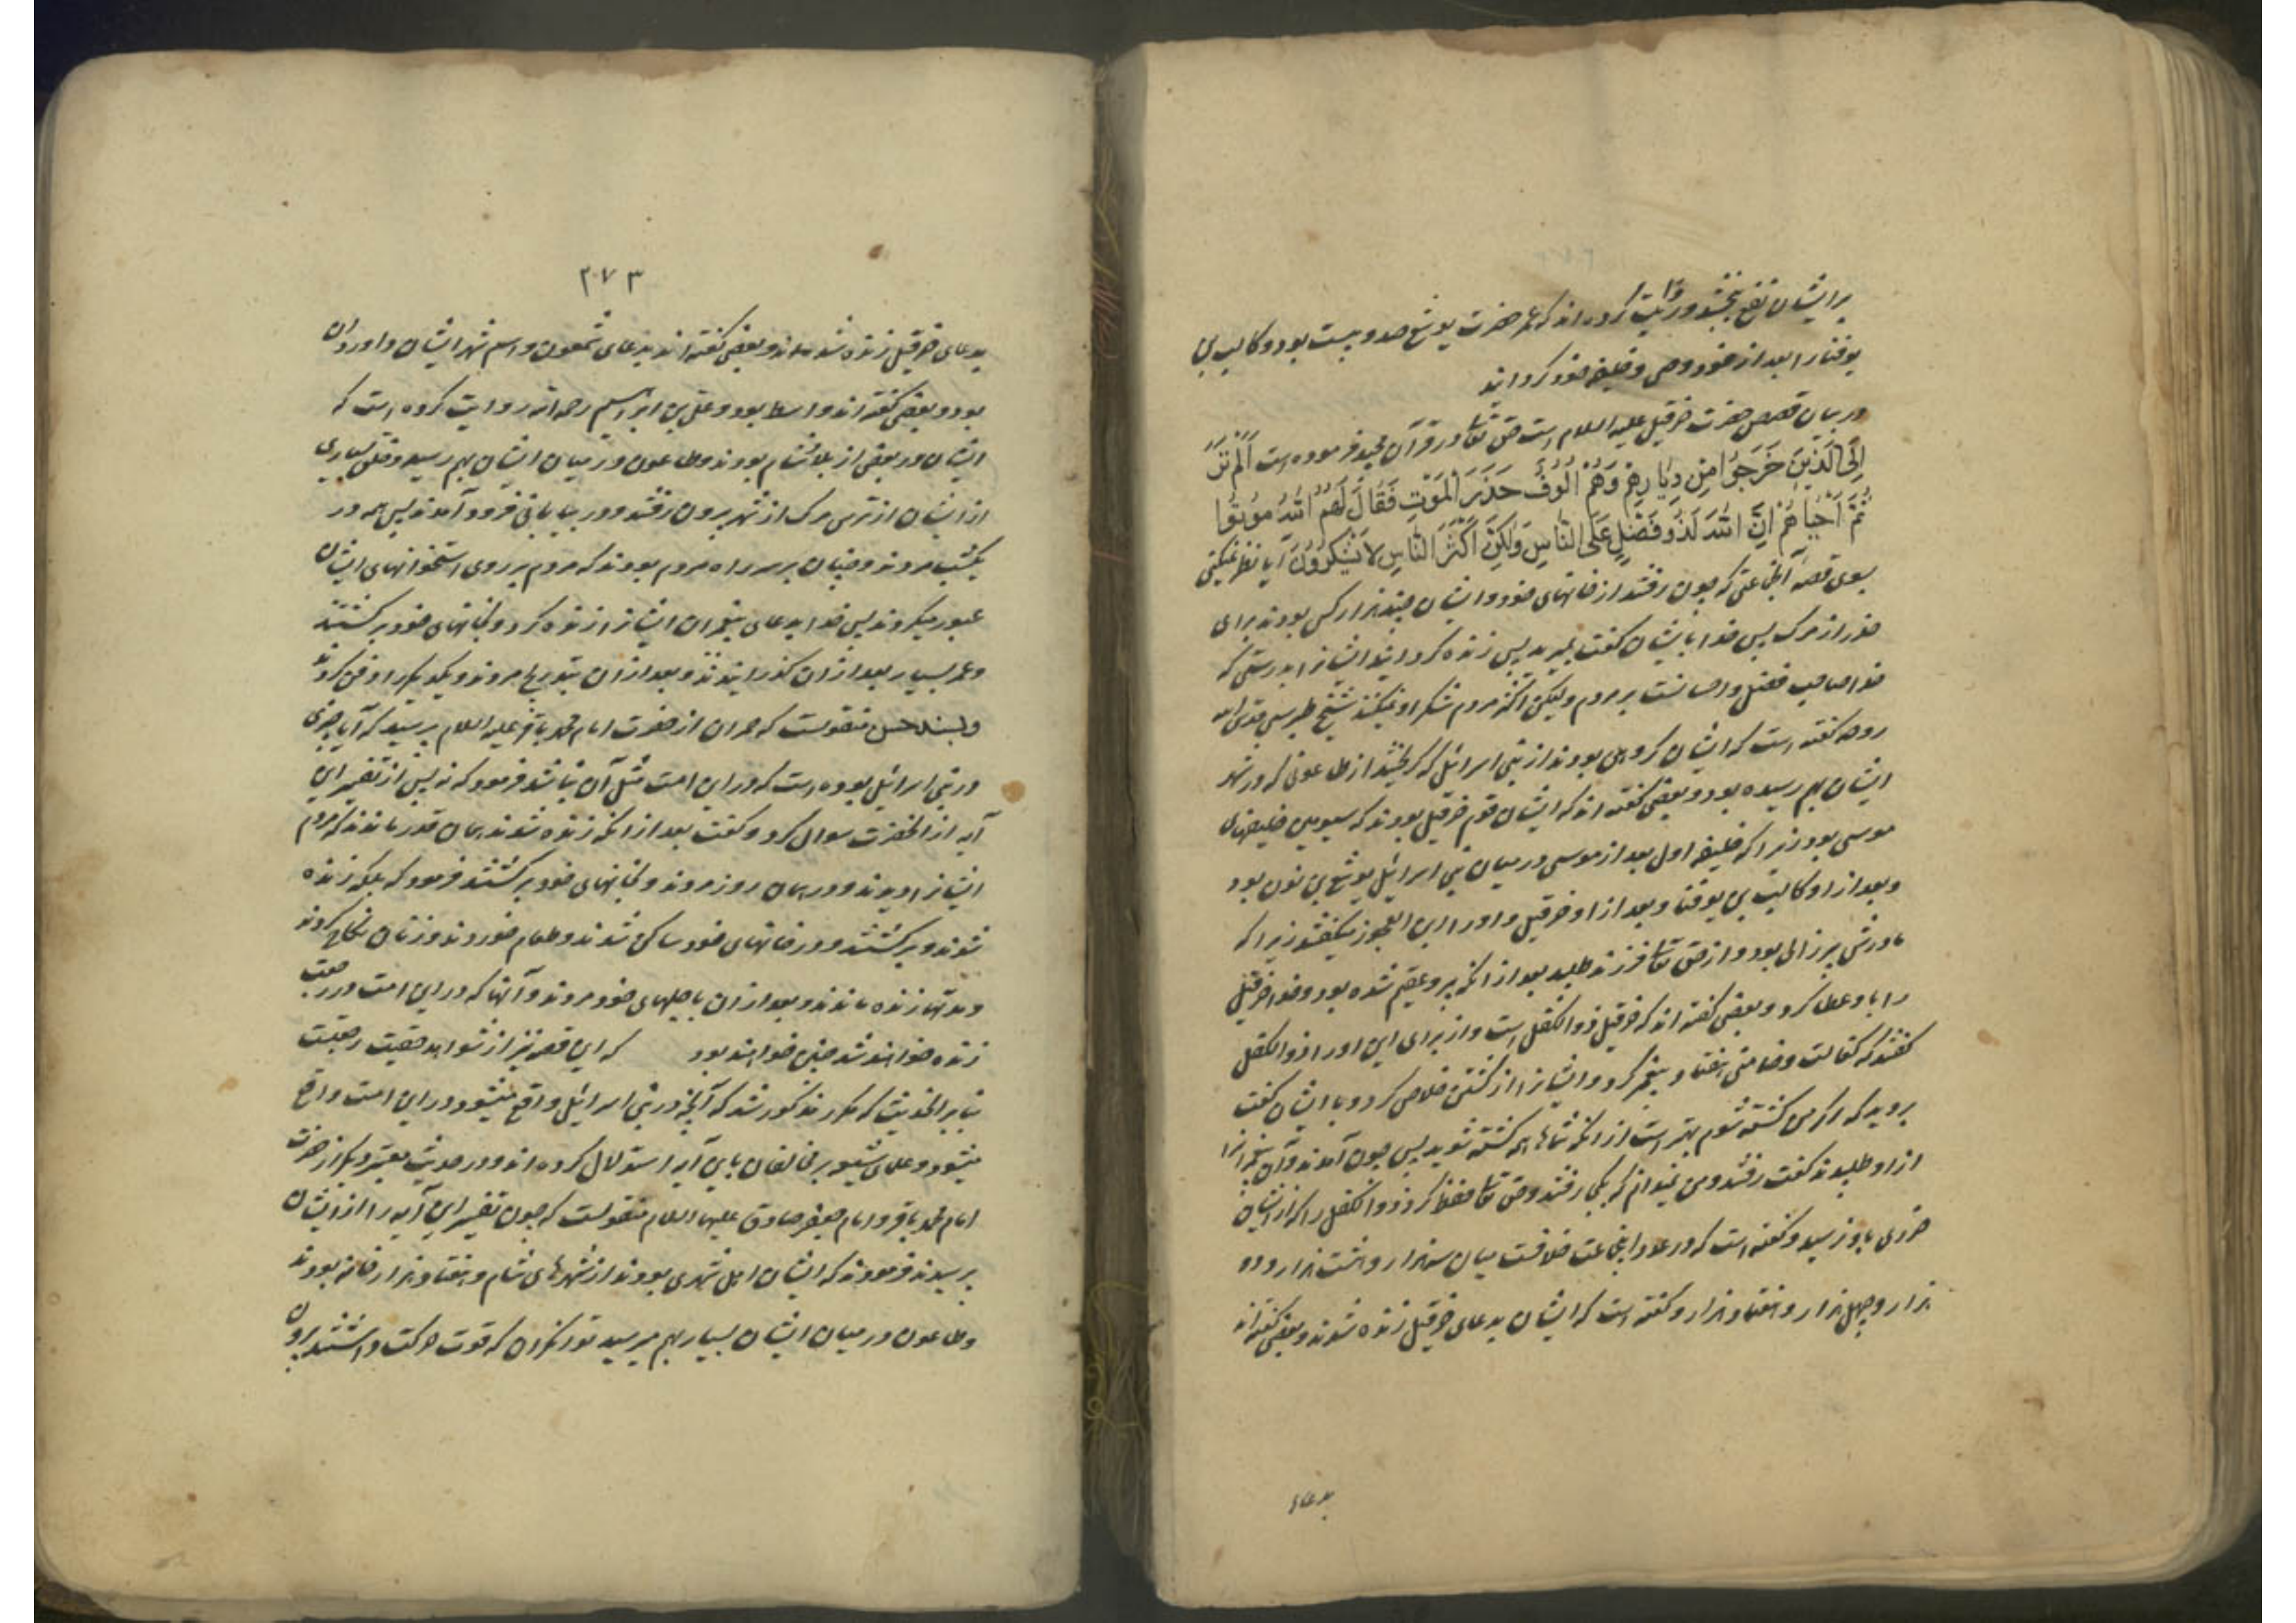 برایشان نفع نبخشد و روایت کرده‌اند که عمر حضرت یوشع صد و بیست بود و کالیب بن
یوفنا را بعد از خود وصی و خلیفه خود کردانید
در بیان قصص حضرت خرقیل علیه السلام است حق تعا در قرآن مجید فرموده است اَلَمْ تَرَ
اِلَی الَّذینَ خَرَجُوا مِنْ دِیارِهِمْ وَهُمْ اُلُوفٌ حَذَرَ الْمَوْتِ فَقالَ لَهُمُ اللّهُ مُوتُوا
ثُمَّ اَحْیاهُمْ اِنَّ اللّهَ لَذُو فَضْلٍ عَلَی النّاسِ وَلکِنَّ اَکْثَرَ النّاسِ لا یَشْکُرُونَ آیا نظر نمیکنی
بسوی قصه آنجماعتی که چون رفتند از خانهای خود و ایشان چند هزار کس بودند برای
حذر از مرک پس خدا بایشان کفت بمیرید پس زنده کردانید ایشانرا بدرستی که
خدا صاحب فضل و احسانست بر مردم ولیکن اکثر مردم شکر او نمیکنند شیخ طبرسی قدس الله
روحه کفته است که ایشان کروهی بودند از بنی اسرائیل که کریختند از طاعونی که در شهر
ایشان بهم رسیده بود و بعضی کفته اند که ایشان قوم خرقیل بودند که سیومین خلیفهای
موسی بود زیرا که خلیفه اول بعد از موسی در میان بنی اسرائیل یوشع بن نون بود
و بعد از او کالیب بن یوفنا و بعد از او خرقیل و او را ابن العجوز میکفتند زیرا که
مادرش پیر زالی بود و از حق تعا فرزند طلبید بعد از آنکه پیر و عقیم شده بود و خدا خرقیل
را باو عطا کرد و بعضی کفته اند که خرقیل ذوالکفل است و از برای این او را ذوالکفل
کفتند که کفالت و ضامنی هفتاد پیغمبر کرد و ایشانرا از کشتن خلاص کرد و با ایشان کفت
بروید که اکر من کشته شوم بهتر است از آنکه شماها همه کشته شوید پس چون آمدند و آن پیغمبرانرا
از او طلبیدند کفت رفتند و من نمیدانم که بکجا رفتند و حق تعا حفظ کرد ذوالکفل را که از ایشان
ضرری باو نرسید و کفته است که در عدد اینجماعت خلافست میان سه هزار و هشت هزار و ده
هزار و چهل هزار و هفتاد هزار و کفته است که ایشان بدعای خرقیل زنده شدند و بعضی کفته اند
بدعای
۲۷۳
بدعای خرقیل زنده شده‌اند و بعضی کفته اند بدعای شمعون و اسم شهر ایشان داوردان
بود و بعضی کفته اند واسط بود و علی بن ابراهیم رحمه الله روایت کرده است که
ایشان در بعضی از بلاد شام بودند و طاعون در میان ایشان بهم رسید و خلق بسیاری
از ایشان از ترس مرک از شهر بیرون رفتند و در بیابانی فرود آمدند پس همه در
یکشب مردند و چنان بر سر راه مردم بودند که مردم بر روی استخوانهای ایشان
عبور میکردند پس خدا بدعای پیغمبران ایشانرا زنده کرد و بخانهای خود برکشتند
و عمر بسیار بعد از ان کذرانیدند و بعد از ان بتدریج مردند و یکدیکر را دفن کردند
و بسند حسن منقولست که حمران از حضرت امام محمد باقر علیه السلام پرسید که آیا چیزی
در بنی اسرائیل بوده است که در این امت مثل آن نباشد فرمود که نه پس از تفسیر این
آیه از آنحضرت سوال کرد و کفت بعد از آنکه زنده شدند همان قدر ماندند که مردم
ایشانرا دیدند و در همان روز مردند و بخانهای خود برکشتند فرمود که بلکه زنده
شدند و برکشتند و در خانهای خود ساکن شدند و طعام خوردند و زنان نکاح کردند
و مدتها زنده ماندند و بعد از ان باجلهای خود مردند و آنها که در این امت در رجعت
زنده خواهند شد چنین خواهند بود که این قصه نیز از شواهد حقیت رجعتست
بنا بر احادیث که مکرر مذکور شد که آنچه در بنی اسرائیل واقع میشود در این امت واقع
میشود و علمای شیعه بر مخالفان باین آیه استدلال کرده اند و در حدیث معتبر دیکر از حضرت
امام محمد باقر و امام جعفر صادق علیهما السلام منقولست که چون تفسیر این آیه را از ایشان
پرسیدند فرمودند که ایشان اهل شهری بودند از شهرهای شام و هفتاد هزار خانه بودند
و طاعون در میان ایشان بسیار بهم میرسید توانکران که قوت حرکت داشتند بیرون